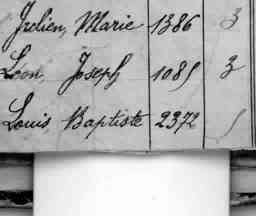 Julien, Marie 1386 3
Leon, Joseph 1085 3
Louis Baptiste 2372 /